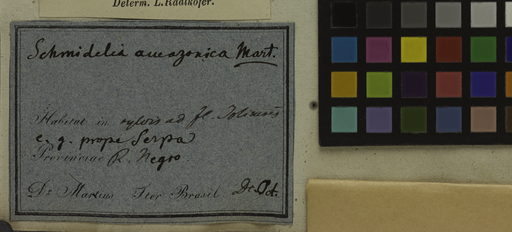 Determ. L. Radlkofer.
Schmidelia amazonica Mart.
Habitat in sylvis ad fl. Solimoës
e. g. prope Serpa
Provinciae R. Negro
Dr. Martius Iter Brasil. Dr. Oct.